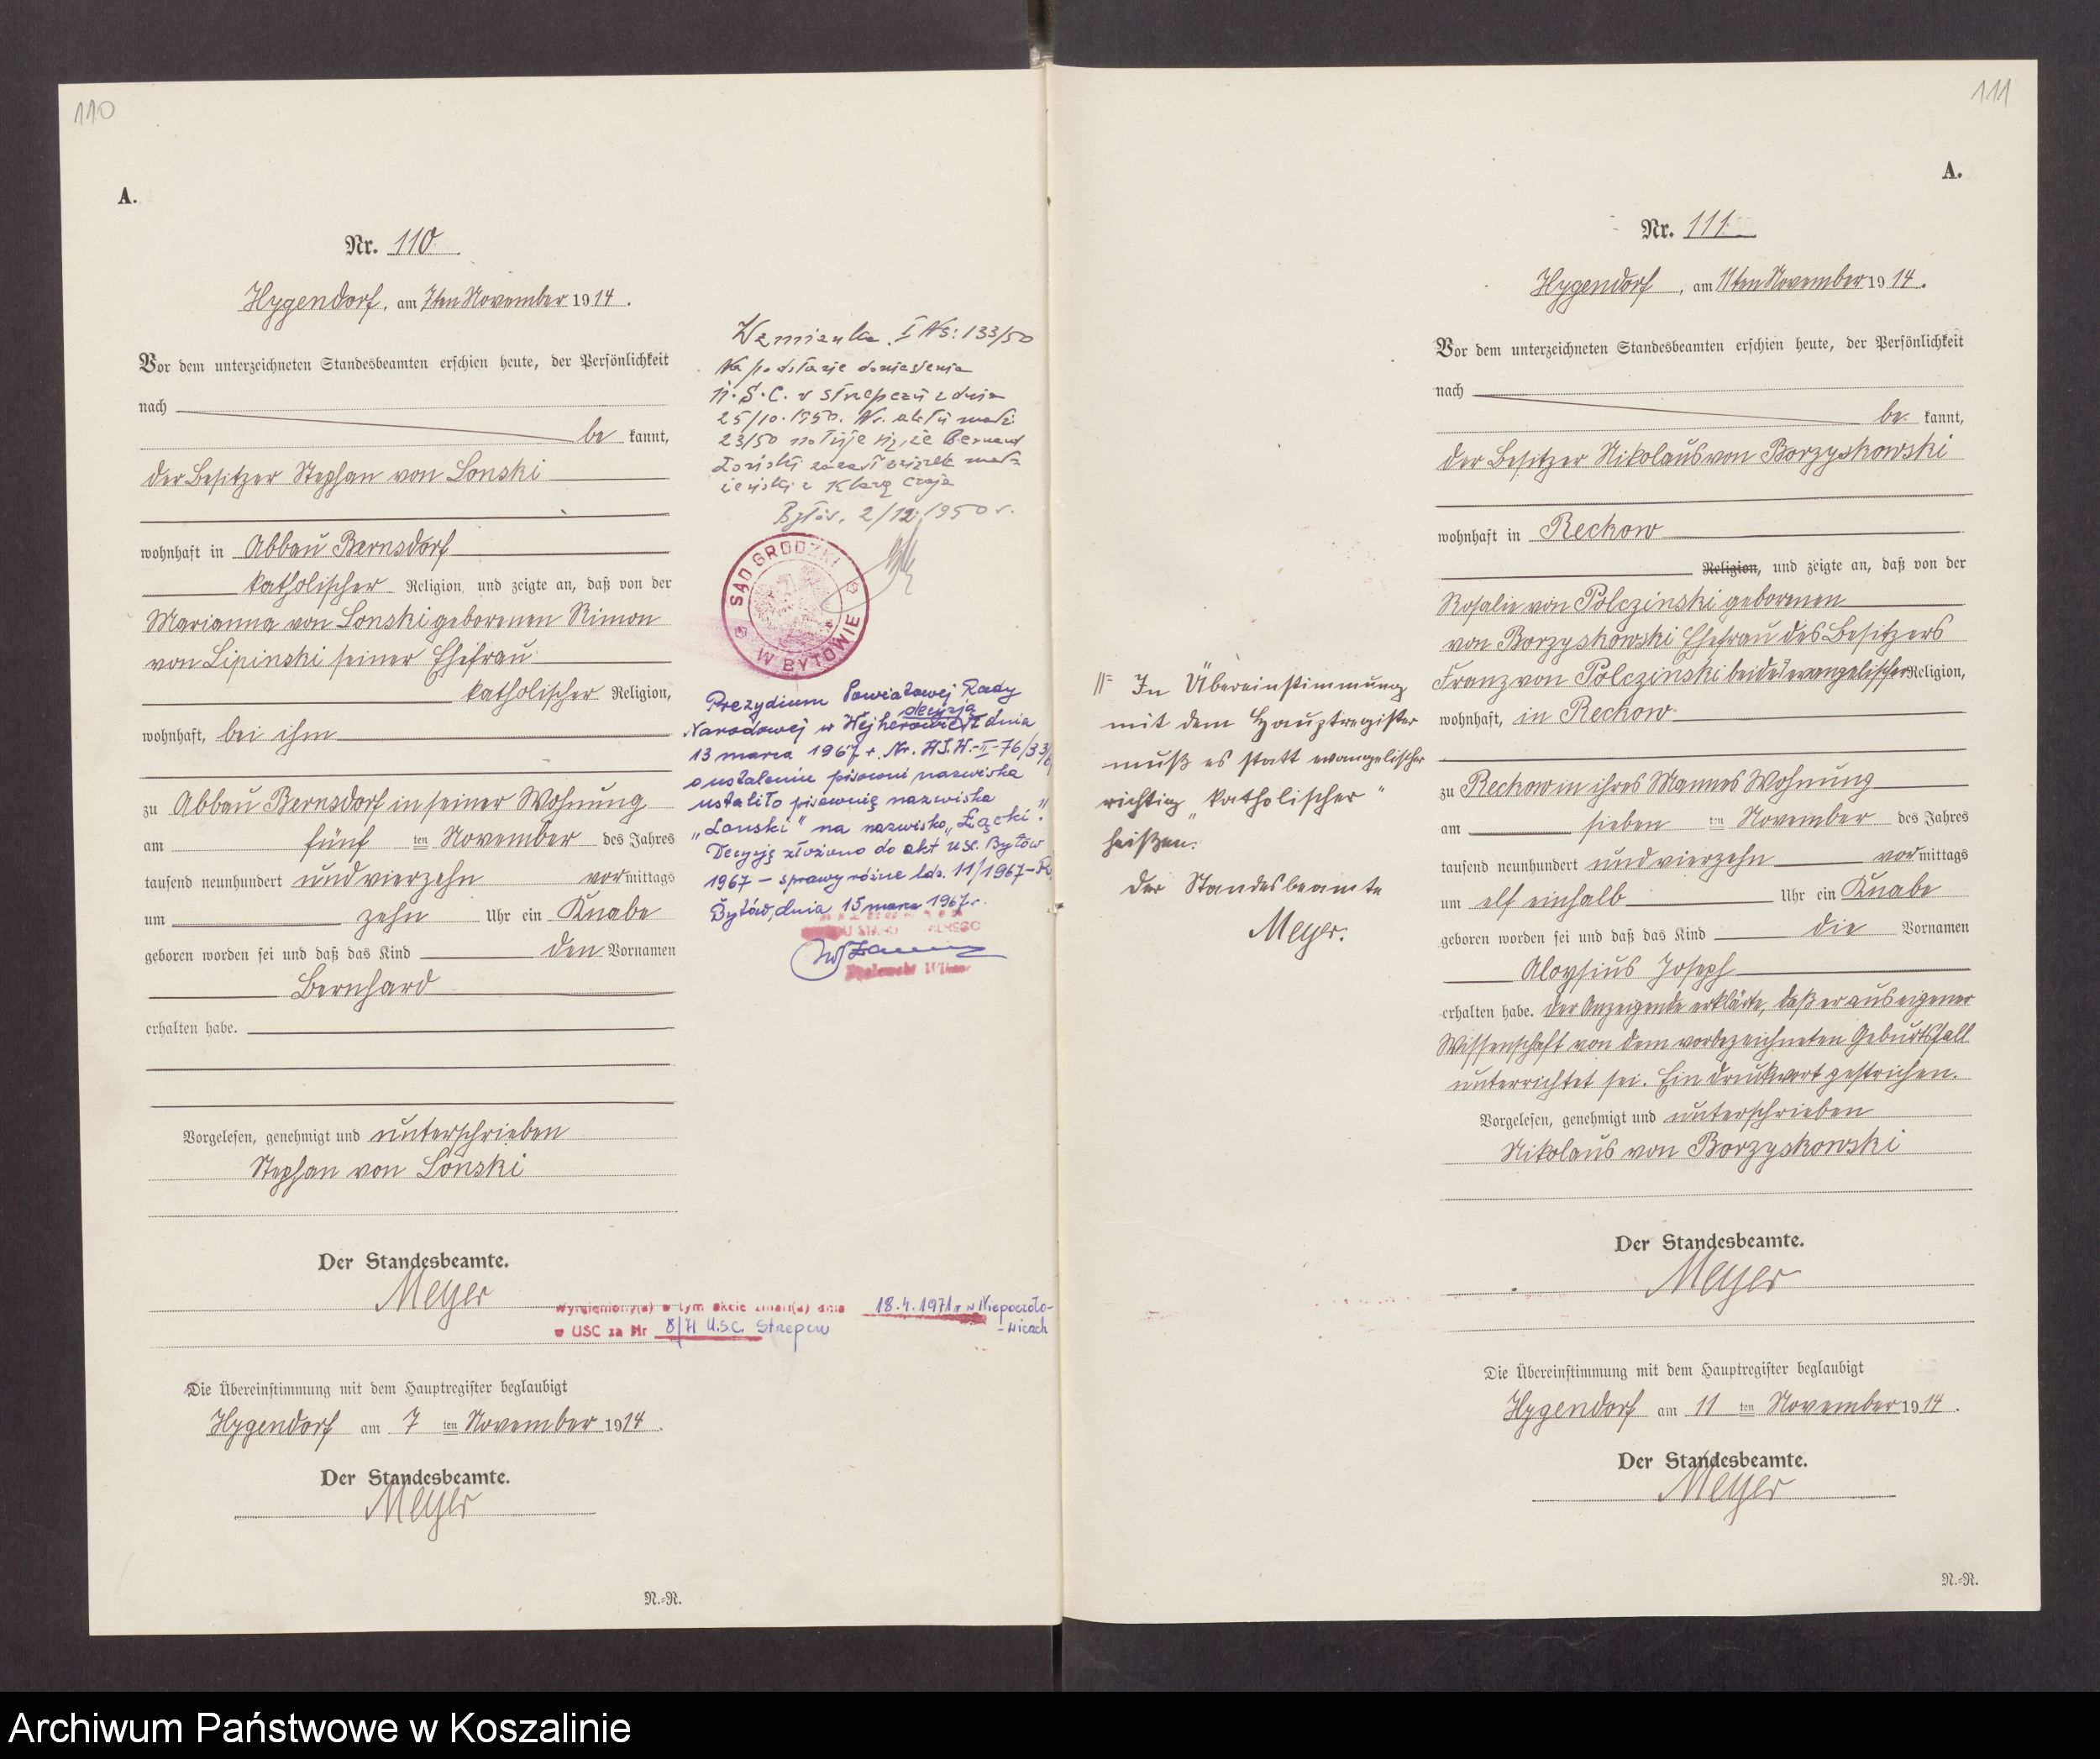 110
A.
Nr. 110
Hygendorf, am 7ten November 1914.
Vor dem unterzeichneten Standesbeamten erschien heute, der Persönlichkeit
nach
be kannt,
der Besitzer Stephan von Lonski
wohnhaft in Abbau Bernsdorf
katholischer Religion, und zeigte an, daß von der
Marianna von Lonski geborenen Rimon
von Lipinski seiner Ehefrau
katholischer Religion,
wohnhaft, bei ihm
zu Abbau Bernsdorf in seiner Wohnung
am fünf ten November des Jahres
tausend neunhundert und vierzehn vormittags
um zehn Uhr ein Knabe
geboren worden sei und daß das Kind den Vornamen
Bernhard
erhalten habe.
Vorgelesen, genehmigt und unterschrieben
Stephan von Lonski
Der Standesbeamte.
Meyer
Die Übereinstimmung mit dem Hauptregister beglaubigt
Hygendorf am 7 ten November 1914.
Der Standesbeamte.
Meyer
N.-R.
Wzmianka. I Ns: 133/50
Na podstawie doniesienia
U.S.C. w Strzepczu z dnia
25/10.1950. Nr. aktu małż.
23/50 notuje się, że Bernard
Łoński zawarł związek małż
żeński z Klarą Czaja
Bytów, 2/12.1950 r.
SĄD GRODZKI W BYTOWIE
Prezydium Powiatowej Rady
Narodowej w Wejherowie decyzją z dnia
13 marca 1967 r. Nr. H.S.W.-II-76/33/
o ustalenie pisowni nazwiska
ustaliło pisownię nazwiska
„Lonski" na nazwisko „Łącki".
Decyzję złożono do akt USC. Bytów
1967 – sprawy różne ldz. 11/1967–R.
Bytów, dnia 15 marca 1967 r.
Wymieniony(a) w tym akcie zmarł(a) dnia 18.4.1971 r w Niepoczoło-
-wicach
w USC za Nr 8/71 U.S.C. Strzepcz
111
A.
Nr. 111.
Hygendorf, am 11ten November 1914.
Vor dem unterzeichneten Standesbeamten erschien heute, der Persönlichkeit
nach
be kannt,
der Besitzer Nikolaus von Borzyskowski
wohnhaft in Reckow
Religion, und zeigte an, daß von der
Rosalie von Polczinski geborenen
von Borzyskowski Ehefrau des Besitzers
Franz von Polczinski beide evangelischer Religion,
wohnhaft, in Reckow
zu Reckow in ihres Mannes Wohnung
am sieben ten November des Jahres
tausend neunhundert und vierzehn vormittags
um elf einhalb Uhr ein Knabe
geboren worden sei und daß das Kind die Vornamen
Aloysius Joseph
erhalten habe. Der Anzeigende erklärte, daß er aus eigener
Wissenschaft von dem vorbezeichneten Geburtsfall
unterrichtet sei. Ein Druckwort gestrichen.
Vorgelesen, genehmigt und unterschrieben
Nikolaus von Borzyskowski
Der Standesbeamte.
Meyer
Die Übereinstimmung mit dem Hauptregister beglaubigt
Hygendorf am 11 ten November 1914.
Der Standesbeamte.
Meyer
N.-R.
In Übereinstimmung
mit dem Hauptregister
muß es statt evangelischer
richtig „katholischer"
heißen.
Der Standesbeamte
Meyer.
Archiwum Państwowe w Koszalinie